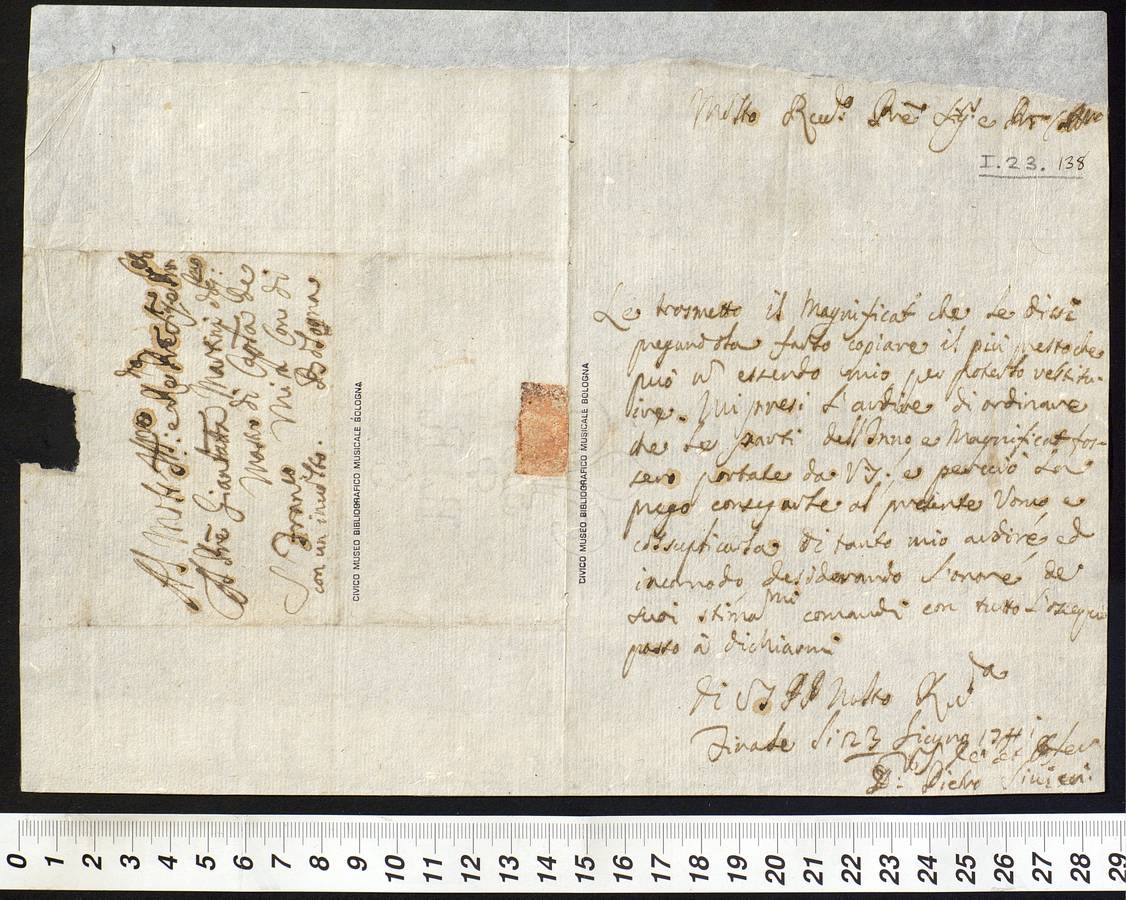 Molto Rev.do P.re Sig.r e
I.23.138
Le trasmetto il Magnificat che le dissi
pregandola farlo copiare il più presto che
può essendo mio per poterlo restitu-
ire. Mi presi l'ardire di ordinare
che le parti dell'Inno e Magnificat fos-
sero portate da VS. e perciò la
prego consegnarle al presente Uomo e
di tanto mio ardire ed
incomodo, desiderando l'onore de
suoi stima.mi comandi con tutto l'ossequio
passo à dichiarmi
Di VS Molto Rev.da
li 23 Giugno 1741
D: Pietro
Al Molto
Giambatta Martini
Mastro di Capella de
Minori Con. di
S. Franc.co Bologna
con un involto.
CIVICO MUSEO BIBLIOGRAFICO MUSICALE BOLOGNA
CIVICO MUSEO BIBLIOGRAFICO MUSICALE BOLOGNA
0 1 2 3 4 5 6 7 8 9 10 11 12 13 14 15 16 17 18 19 20 21 22 23 24 25 26 27 28 29